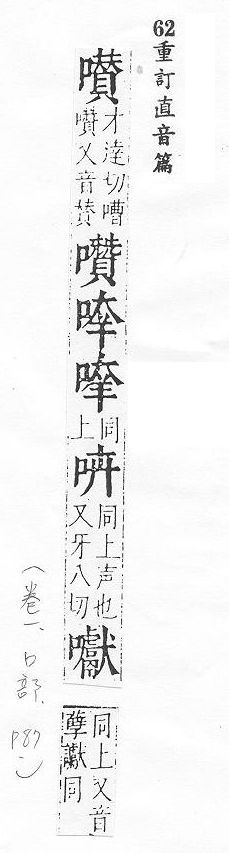 62重訂直音篇
才達切嘈
囋又音賛
囋
同
上
同上声也
又牙八切
囐
同上又音
孽讞同
(卷一、口部、P87)